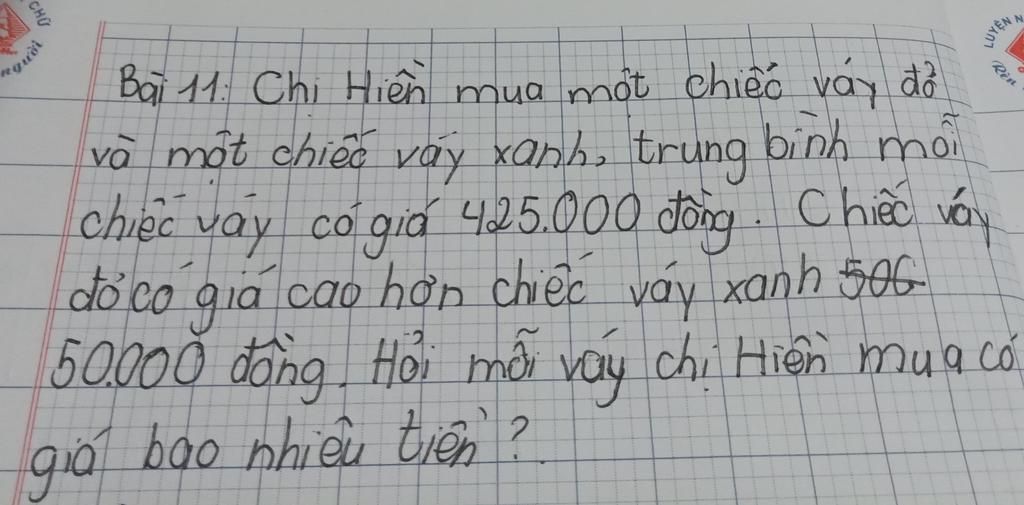 CHỮ
người
LUYỆN N
Rèn
Bài 11: Chị Hiền mua một chiếc váy đỏ
và một chiếc váy xanh, trung bình mỗi
chiếc váy có giá 425.000 đồng. Chiếc váy
đỏ có giá cao hơn chiếc váy xanh 506
50.000 đồng. Hỏi mỗi váy chị Hiền mua có
giá bao nhiêu tiền?